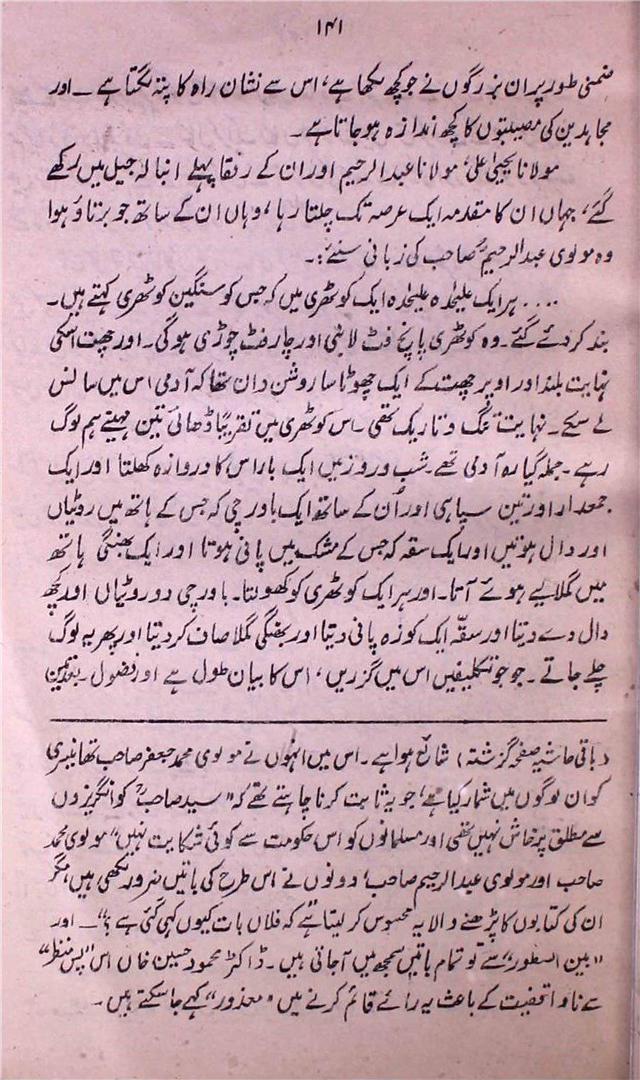 ۱۴۱
ضمنی طور پر ان بزرگوں نے جو کچھ لکھا ہے، اس سے نشان راہ کا پتہ لگتا ہے ۔ اور
مجاہدین کی مصیبتوں کا کچھ اندازہ ہو جاتا ہے ۔
مولانا یحییٰ علی، مولانا عبد الرحیم اور ان کے رفقا پہلے انبالہ جیل میں رکھے
گئے، جہاں ان کا مقدمہ ایک عرصہ تک چلتا رہا، وہاں ان کے ساتھ جو برتاؤ ہوا
وہ مولوی عبد الرحیم صاحب کی زبانی سنئے :۔
.... ہر ایک علیحدہ علیحدہ ایک کوٹھری میں کہ جس کو سنگین کوٹھری کہتے ہیں ۔
بند کر دئے گئے ۔ وہ کوٹھری پانچ فٹ لانبی اور چار فٹ چوڑی ہو گی ۔ اور چھت اسکی
نہایت بلند اور اوپر چھت کے ایک چھوٹا سا روشن دان تھا کہ آدمی اس میں سانس
لے سکے ۔ نہایت تنگ و تاریک تھی ۔ اس کوٹھری میں تقریباً ڈھائی تین مہینے ہم لوگ
رہے ۔ جملہ گیارہ آدمی تھے ۔ شب و روز میں ایک بار اس کا دروازہ کھلتا اور ایک
جمعدار اور تین سپاہی اور اُن کے ساتھ ایک باورچی کہ جس کے ہاتھ میں روٹیاں
اور دال ہوتیں اور ایک سقہ کہ جس کے مشک میں پانی ہوتا اور ایک بھنگی ہاتھ
میں گملا لیے ہوئے آتا ۔ اور ہر ایک کوٹھری کو کھولتا ۔ باورچی دو روٹیاں اور کچھ
دال دے دیتا اور سقّہ ایک کوزہ پانی دیتا اور بھنگی گملا صاف کر دیتا اور پھر یہ لوگ
چلے جاتے ۔ جو جو تکلیفیں اس میں گزریں، اس کا بیان طول ہے اور فضول ۔
(باقی حاشیہ صفحہ گزشتہ) شائع ہوا ہے ۔ اس میں انہوں نے مولوی محمد جعفر صاحب تھانیسری
کو ان لوگوں میں شمار کیا ہے، جو یہ ثابت کرنا چاہتے تھے کہ "سید صاحبؒ کو انگریزوں
سے مطلق پرخاش نہیں تھی اور مسلمانوں کو اس حکومت سے کوئی شکایت نہیں" مولوی محمد
صاحب اور مولوی عبد الرحیم صاحب، دونوں نے اس طرح کی باتیں ضرور لکھی ہیں، مگر
ان کی کتابوں کا پڑھنے والا یہ محسوس کر لیتا ہے کہ فلاں بات کیوں کہی گئی ہے؟" ۔ اور
"بین السطور" سے تو تمام باتیں سمجھ میں آ جاتی ہیں ۔ ڈاکٹر محمود حسین خاں اس "پس منظر"
سے ناواقفیت کے باعث یہ رائے قائم کرنے میں "معذور" کہے جا سکتے ہیں ۔